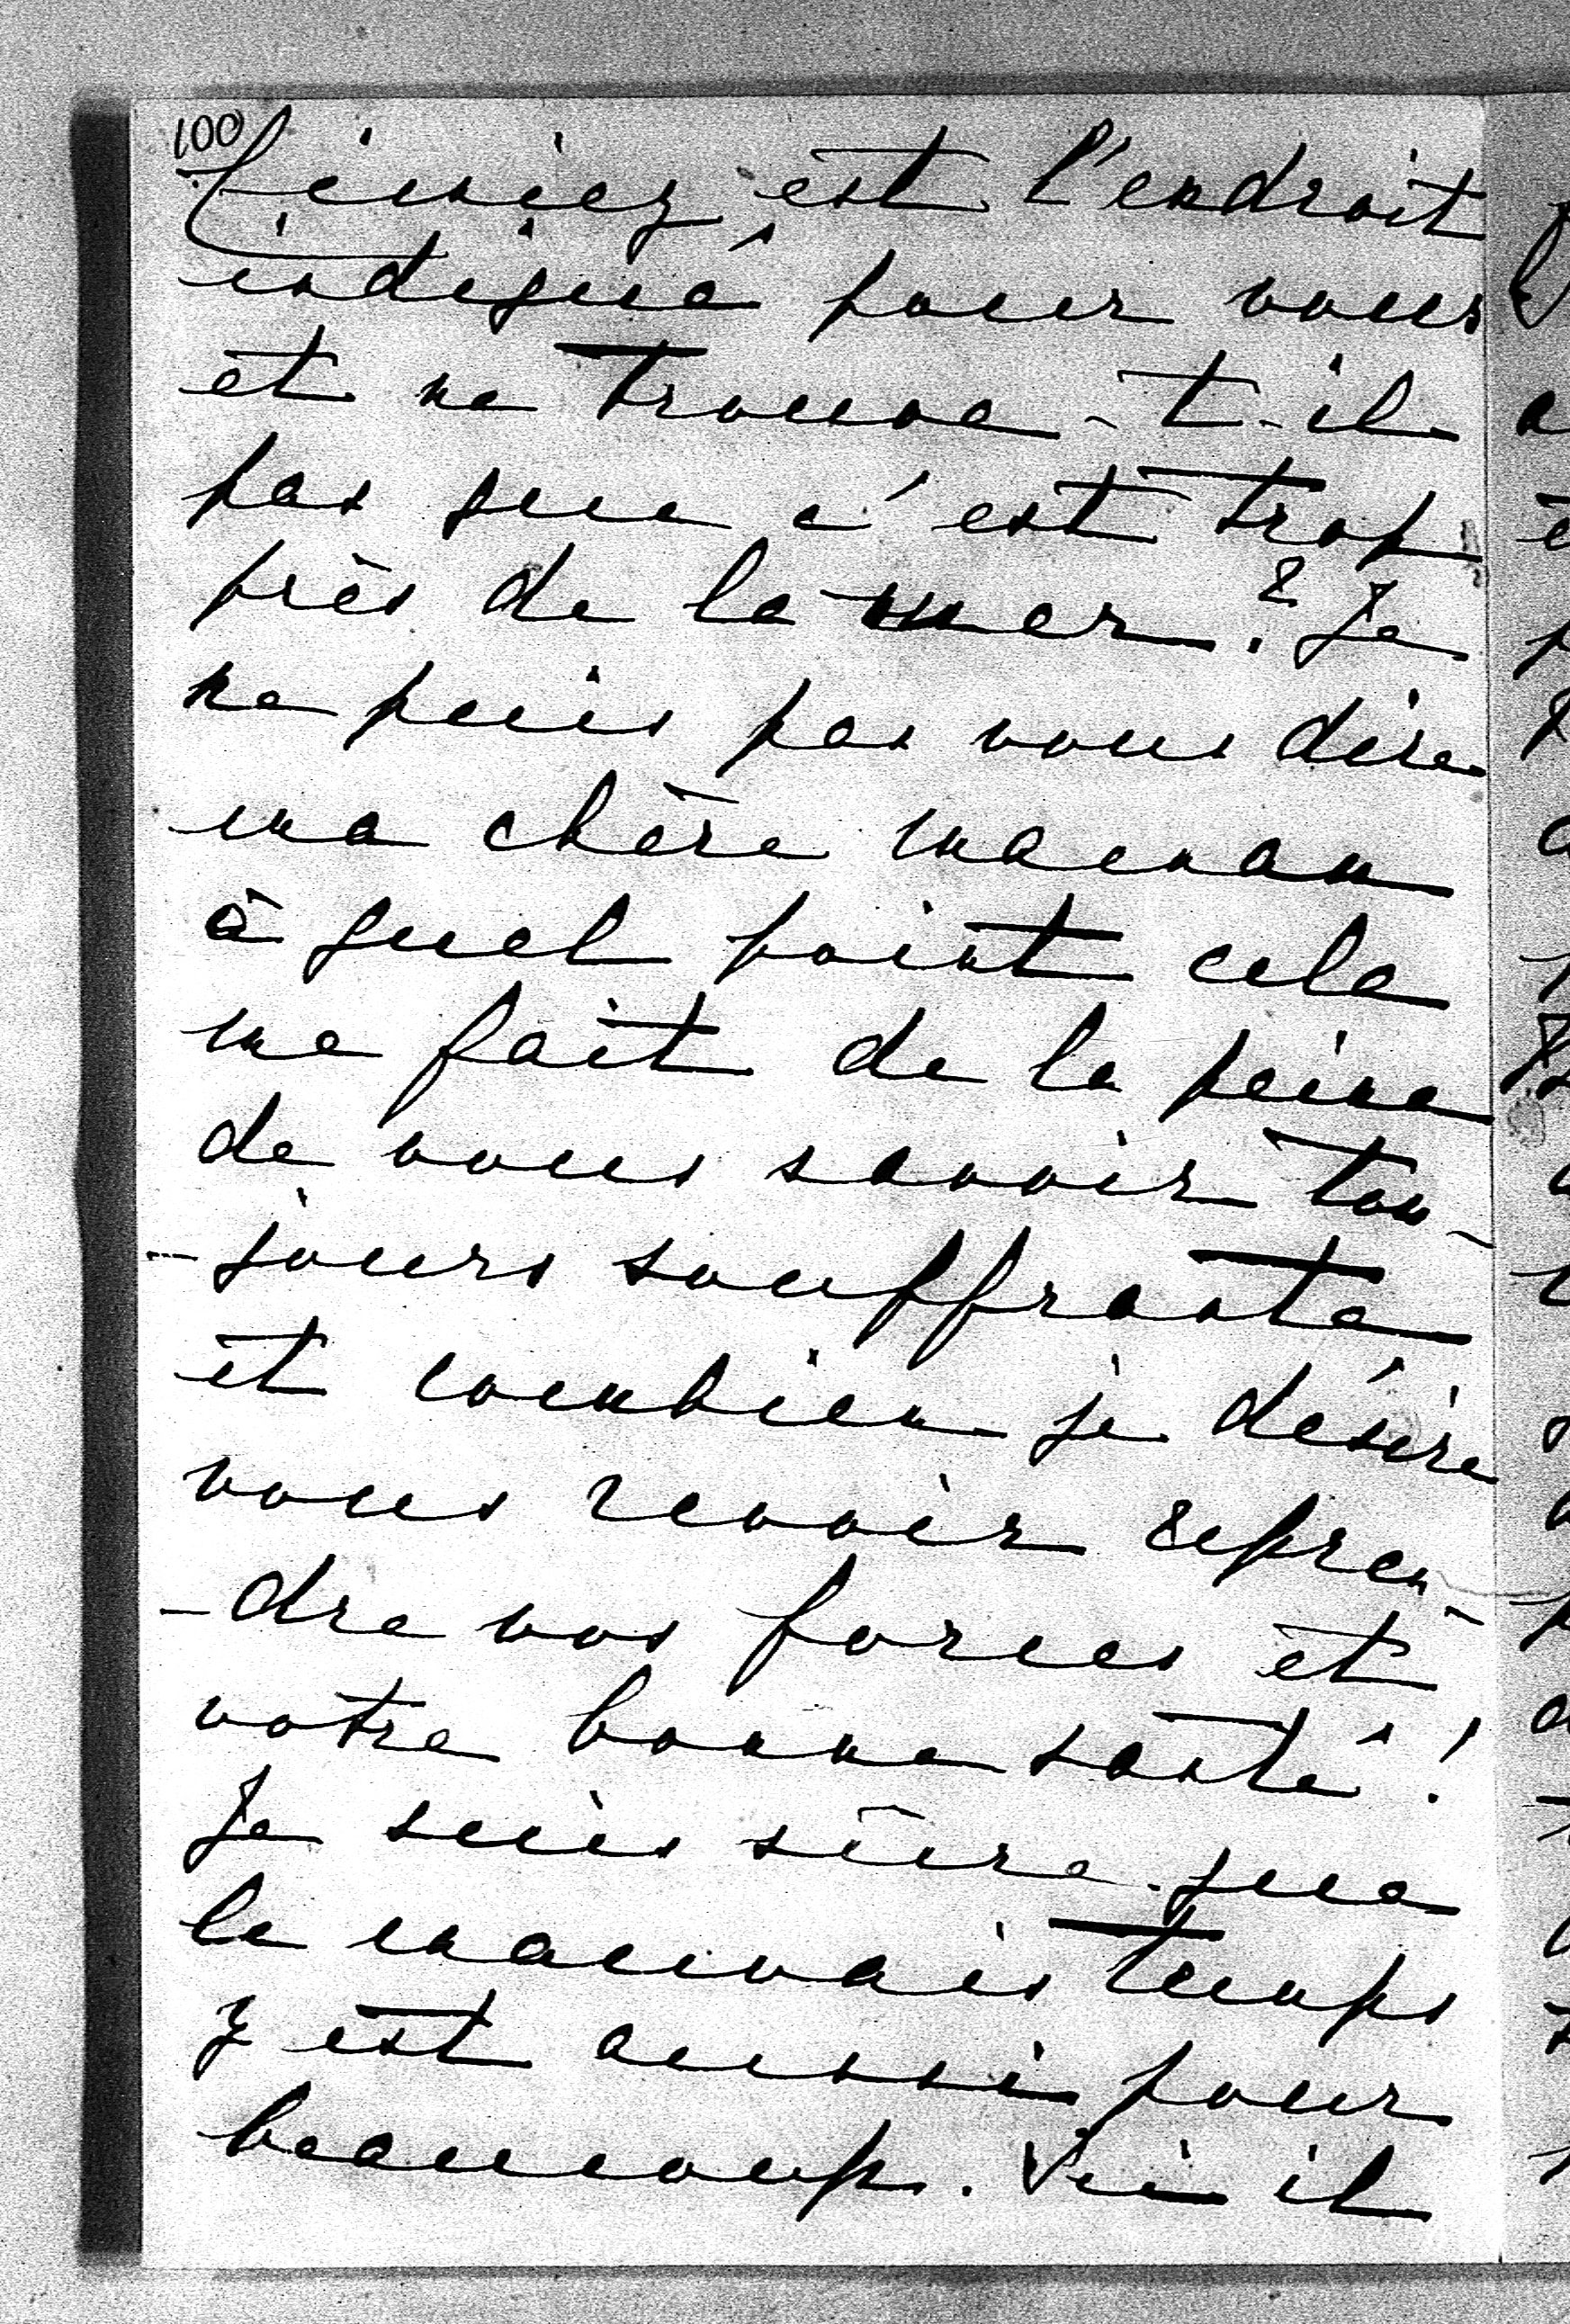 100
Cimiez est l'endroit
indiqué pour vous
et ne trouve-t-il
pas que c'est trop
près de la mer? Je
ne puis pas vous dire
ma chère maman
à quel point cela
me fait de la peine
de vous savoir tou-
-jours souffrante
et combien je désire
vous revoir repren-
-dre vos forces et
votre bonne santé!
Je suis sûre que
le mauvais temps
y est aussi pour
beaucoup. Ici il